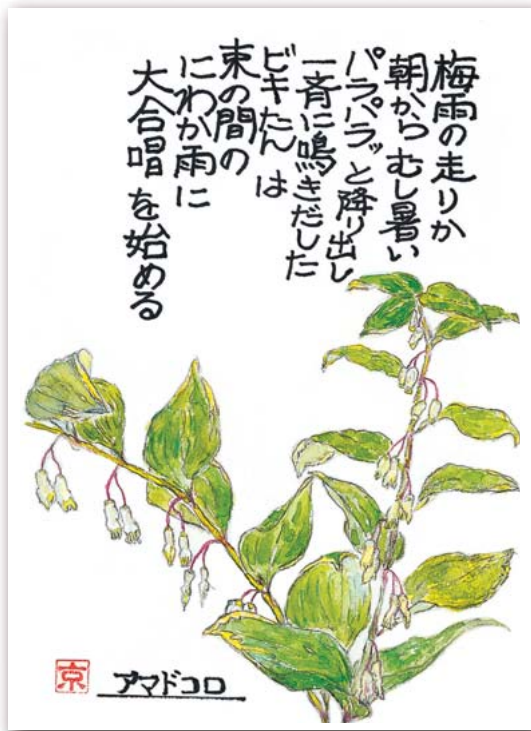 梅雨の走りか
朝からむし暑い
パラパラッと降り出し
一斉に鳴きだした
ビキたんは
束の間の
にわか雨に
大合唱を始める
京
アマドコロ